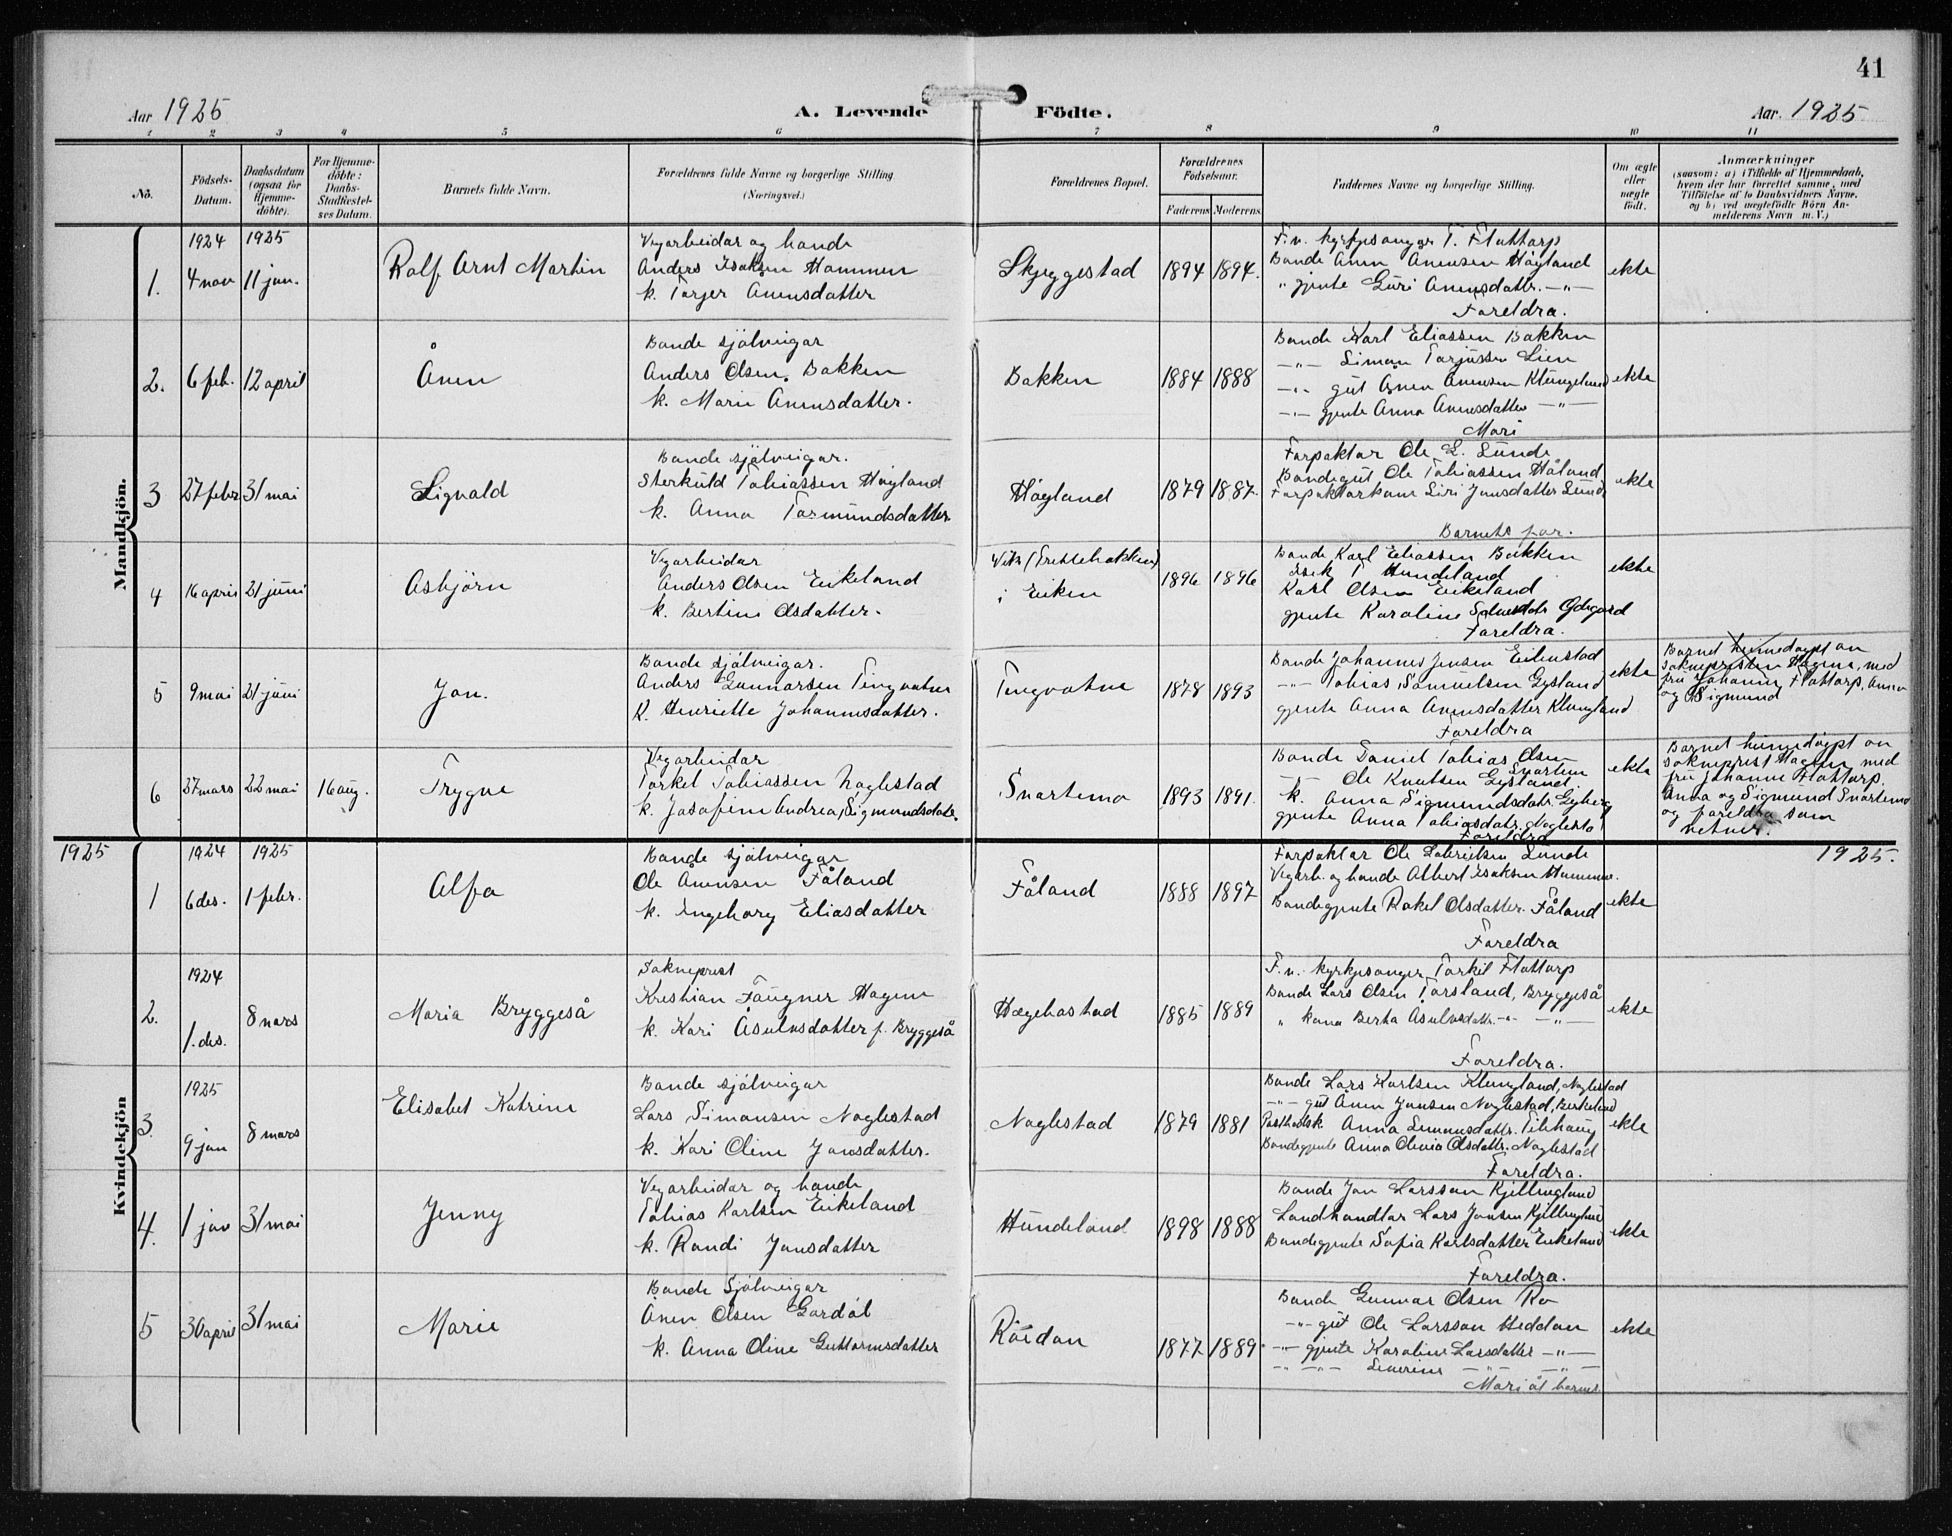 41
Aar 1925
A. Levende Födte.
Aar. 1925
1 2 3 4 5 6 7 8 9 10 11
No.
Födsels-Datum.
Daabsdatum (ogsaa for Hjemme-döbte).
For Hjemme-döbte: Daabs-Stadfæstel-ses Datum.
Barnets fulde Navn.
Forældrenes fulde Navne og borgerlige Stilling (Næringsvei.)
Forældrenes Bopæl.
Forældrenes Födselsaar.
Faderens Moderens
Faddernes Navne og borgerlige Stilling.
Om ægte eller uægte födt.
Anmærkninger
(saasom: a) i Tilfælde af Hjemmedaab,
hvem der har forrettet samme, med
Tilföielse af to Daabsvidners Navne.
og b) ved uægtefödte Börn An-
melderens Navn m. V.)
Mandkjön.
1. 1924 4 nov 1925 11 jan. Rolf Arnt Martin
Vegarbeidar og bonde
Anders Isaksen Hommen
k. Torjer Anensdatter
Skjeggestad 1894 1894.
F.v. kyrkjesongar T. Flottorp
Bonde Anen Anensen Högland
" gjente Guri Anensdatter. -"-
Foreldra.
ekte
2. 6 feb. 12 april Ånen
Bonde sjölveigar
Anders Olsen Bakken
k. Marie Ånensdatter.
Bakken 1884 1888
Bonde Karl Eliassen Bakken
-"- Simon Torjussen Lien
-"- gut Ånen Anensen Klungeland
-"- gjente Anna Anensdatter -"-
Mori
ekte
3 27 febr 31 mai Signald
Bonde sjölveigar.
Sterkuld Tobiassen Högland
k. Anna Tormundsdatter.
Högland 1879 1887.
Forpaktar Ole G. Lunde
Bondegut Ole Tobiassen Håland
Forpaktarkone Siri Jonsdatter Lunde
Barnets far.
ekte
4 16 april 21 juni Asbjörn
Vegarbeidar
Anders Olsen Eikeland
k. Bertine Olsdatter.
i Eiken 1896 1896
Bonde Karl Eliassen Bakken
Isak T Hundeland
Karl Olsen Eikeland
gjente Karoline Ödegård
Foreldra.
ekte
5 9 mai 21 juni Jon.
Bonde sjölveigar.
Anders Gunnarsen Tingvatne
K. Henriette Johannesdatter.
Tingvatne 1878 1893
Bonde Johannes Jensen Eikenstad
-"- Tobias Samuelsen Gysland
gjente Anna Anensdatter Klungland
Foreldra
ekte
Barnet heimedöypt av
sokneprestен Hagen, med
fru Johanne Flottorp, Anna
og Sigmund
6 27 mars 22 mai 16 aug. Trygve
Vegarbeidar
Torkel Tobiassen Naglestad
k. Josofine Andrea Sigmundsdatr.
Snartemo 1893 1891.
Bonde Daniel Tobias Olsen Snartemo
-"- Ole Knutsen Gysland
k. Anna Sigmundsdatr. Gyberg
gjente Anna Tobiasdatr. Naglesta
Foreldra
ekte
Barnet heimedöypt av
sokneprest Hagen med
fru Johanne Flottorp,
Anna og Sigmund Snartemo
og foreldra som
vetner.
1925
1925.
Kvindekjön
1 1924 6 des. 1925 1 febr. Alfa
Bonde sjölveigar
Ole Ånensen Fåland
k. Ingeborg Eliasdatter
Fåland 1888 1897
Forpaktar Ole Gabrielsen Lunde
Vegarb. og bonde Albert Isaksen Hummen.
Bondegjente Rakel Olsdatter. Fåland
Foreldra
ekte
2. 1924 1. des. 8 mars Maria Bryggeså
Sokneprest
Kristian Faugner Hagene
k. Kari Åsulvsdatter f. Bryggeså
Hægebostad 1885 1889
F.v. kyrkjesongar Torkel Flottorp
Bonde Lars Olsen Torsland, Bryggeså
" kona Berta Åsulvsdatr. -"- -"-
Foreldra.
ekte
3. 1925 9 jan 8 mars Elisabet Katrine
Bonde sjölveigar
Lars Simonsen Naglestad
k. Kari Oline Jonsdatter.
Naglestad 1879 1881
Bonde Lars Karlsen Klungland, Naglestad
-"- gut Ånen Jonsen Naglestad, Birkeland
Anna Simonsdatter.
Bondegjente Anna Olenia Olsdatr. Naglestad
Foreldra.
ekte
4. 1 jan 31 mai Jenny
Vegarbeidar og bonde
Tobias Karlsen Eikeland
k. Randi Jonsdatter
Hundeland 1898 1888
Bonde Jon Larsson Kjellingland
Landhandlar Lars Jonsen Kjellingland
Bondegjente Sofia Karlsdatter Eikeland
Foreldra.
ekte
5 30 april 31 mai Marie
Bonde Sjölveigar
Ånen Olsen Gardöl
k. Anna Oline Guttormsdatter
Röidan 1877 1889.
Bonde Gunnar Olsen Ro
-"- gut Ole Larsson Heddan
-"- gjente Karoline Larsdatter -"-
-"- -"- Severine -"- -"-
Mori åt barnet
ekte